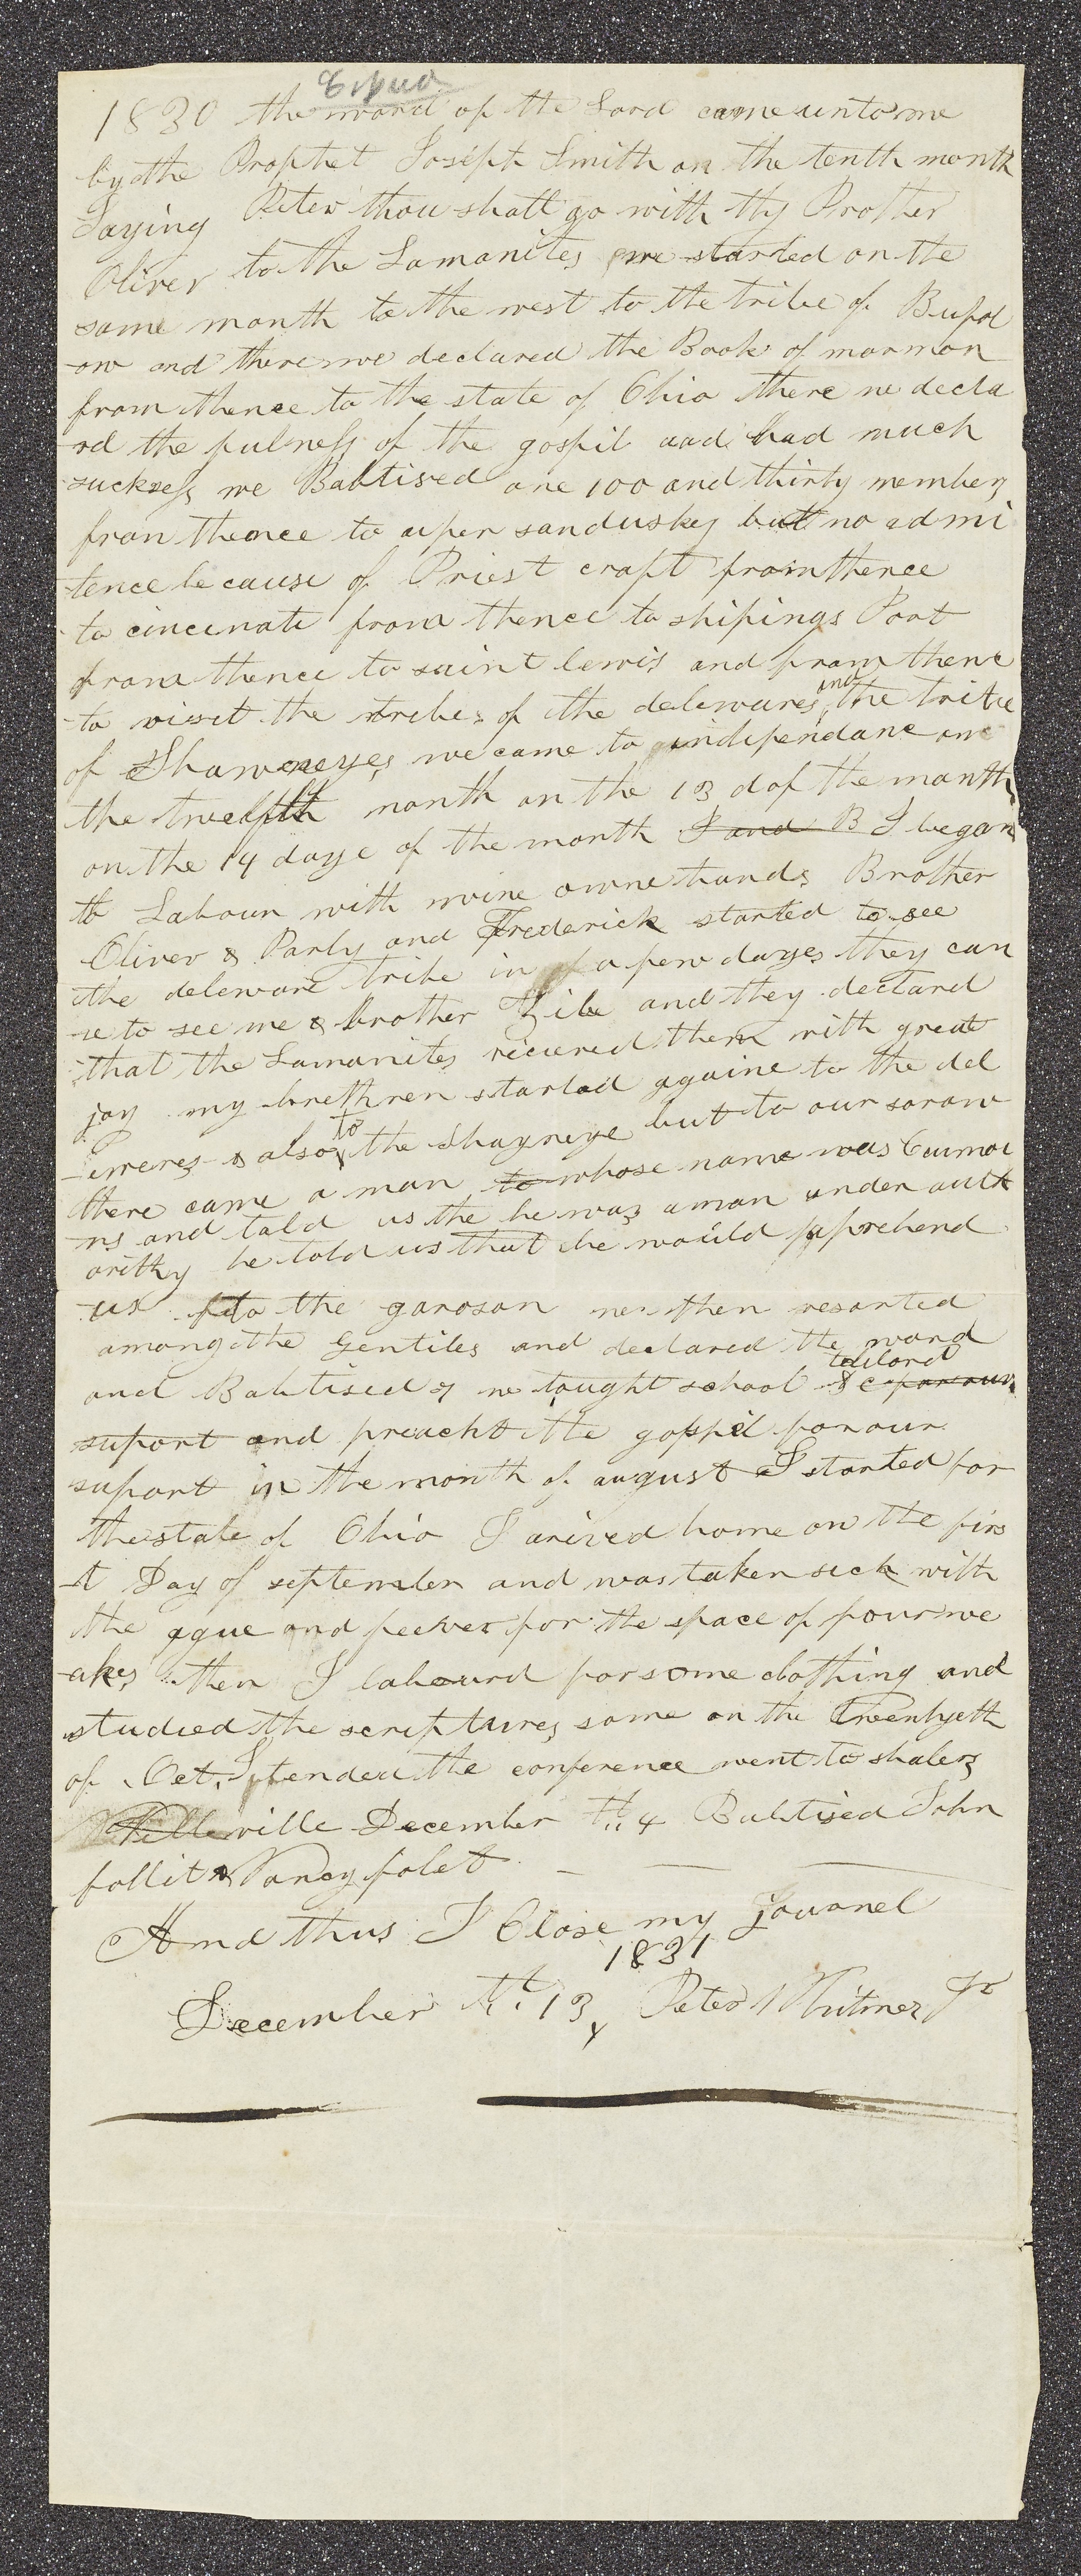 1830 the word of the Lord came unto me
by the Prophet Joseph Smith on the tenth month
Saying Peter thou shalt go with thy Brother
Oliver to the Lamanites we started on the
same month to the west to the tribe of Bufol
-ow and there we declared the Book of mormon
from thence to the state of Ohio there we decla
-rd the fulness of the gospil and had much
sucksess we Babtised one 100 and thirty members
from thence to uper sanduskey but no admi
tence because of Priest craft from thence
to cincinati from thence to shipings Port
from thence to saint lewis and from thence
to visit the tribes of the delewares and the tribe
of Shawneyes we came to independance on
the twelfth month on the 13 d of the month
on the 14 daye of the month I and B I began
to Labour with mine owne hands Brother
Oliver & Parly and Frederick started to see
the deleware tribe in a few dayes they cam
-e to see me & brother Ziba and they declared
that the Lamanites received them with great
joy my brethren started againe to the del
-eweres & also to the Shayneye but to our sorow
there came a man to whose name was Cumoi
ns and told us the he was a man under auth
ority he told us that he would apprehend
us to the garoson we then resorted
among the Gentiles and declared the word
and Babtised 7 we taught school & tailord
suport and preacht the gospil for our
suport in the month of august I started for
the state of Ohio I arived home on the firs
-t Day of september and was taken sick with
the ague and feever for the space of four we
-akes then I labourd for some clothing and
studied the scriptures some on the twentyeth
of Oct. I tended the conference went to shalers
ville December th 4 Babtised John
follit & Nancy folet
And thus I Close my jouranel
1831
December th 13 Peter Whitmer Jr